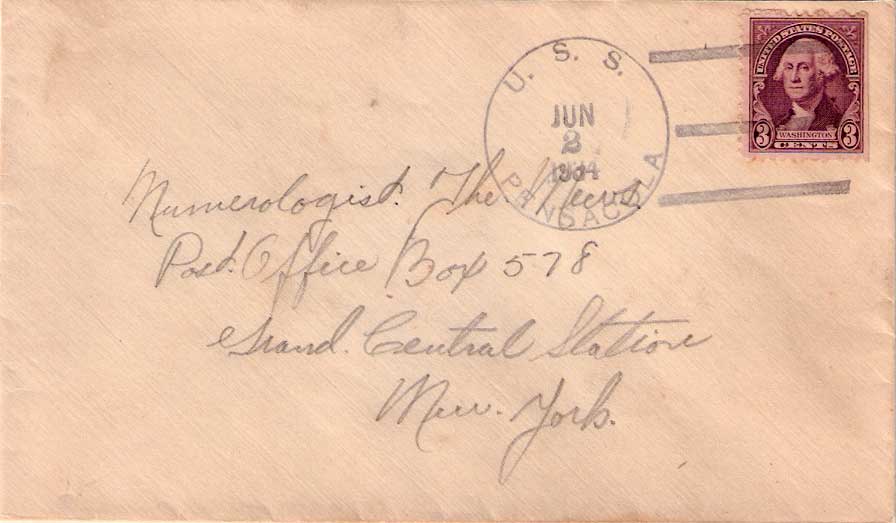 U. S. S.
JUN
2
1934
PENSACOLA
UNITED STATES POSTAGE
WASHINGTON
3 3
CENTS
Numerologist. The News.
Post Office Box 578
Grand. Central Station
New. York.